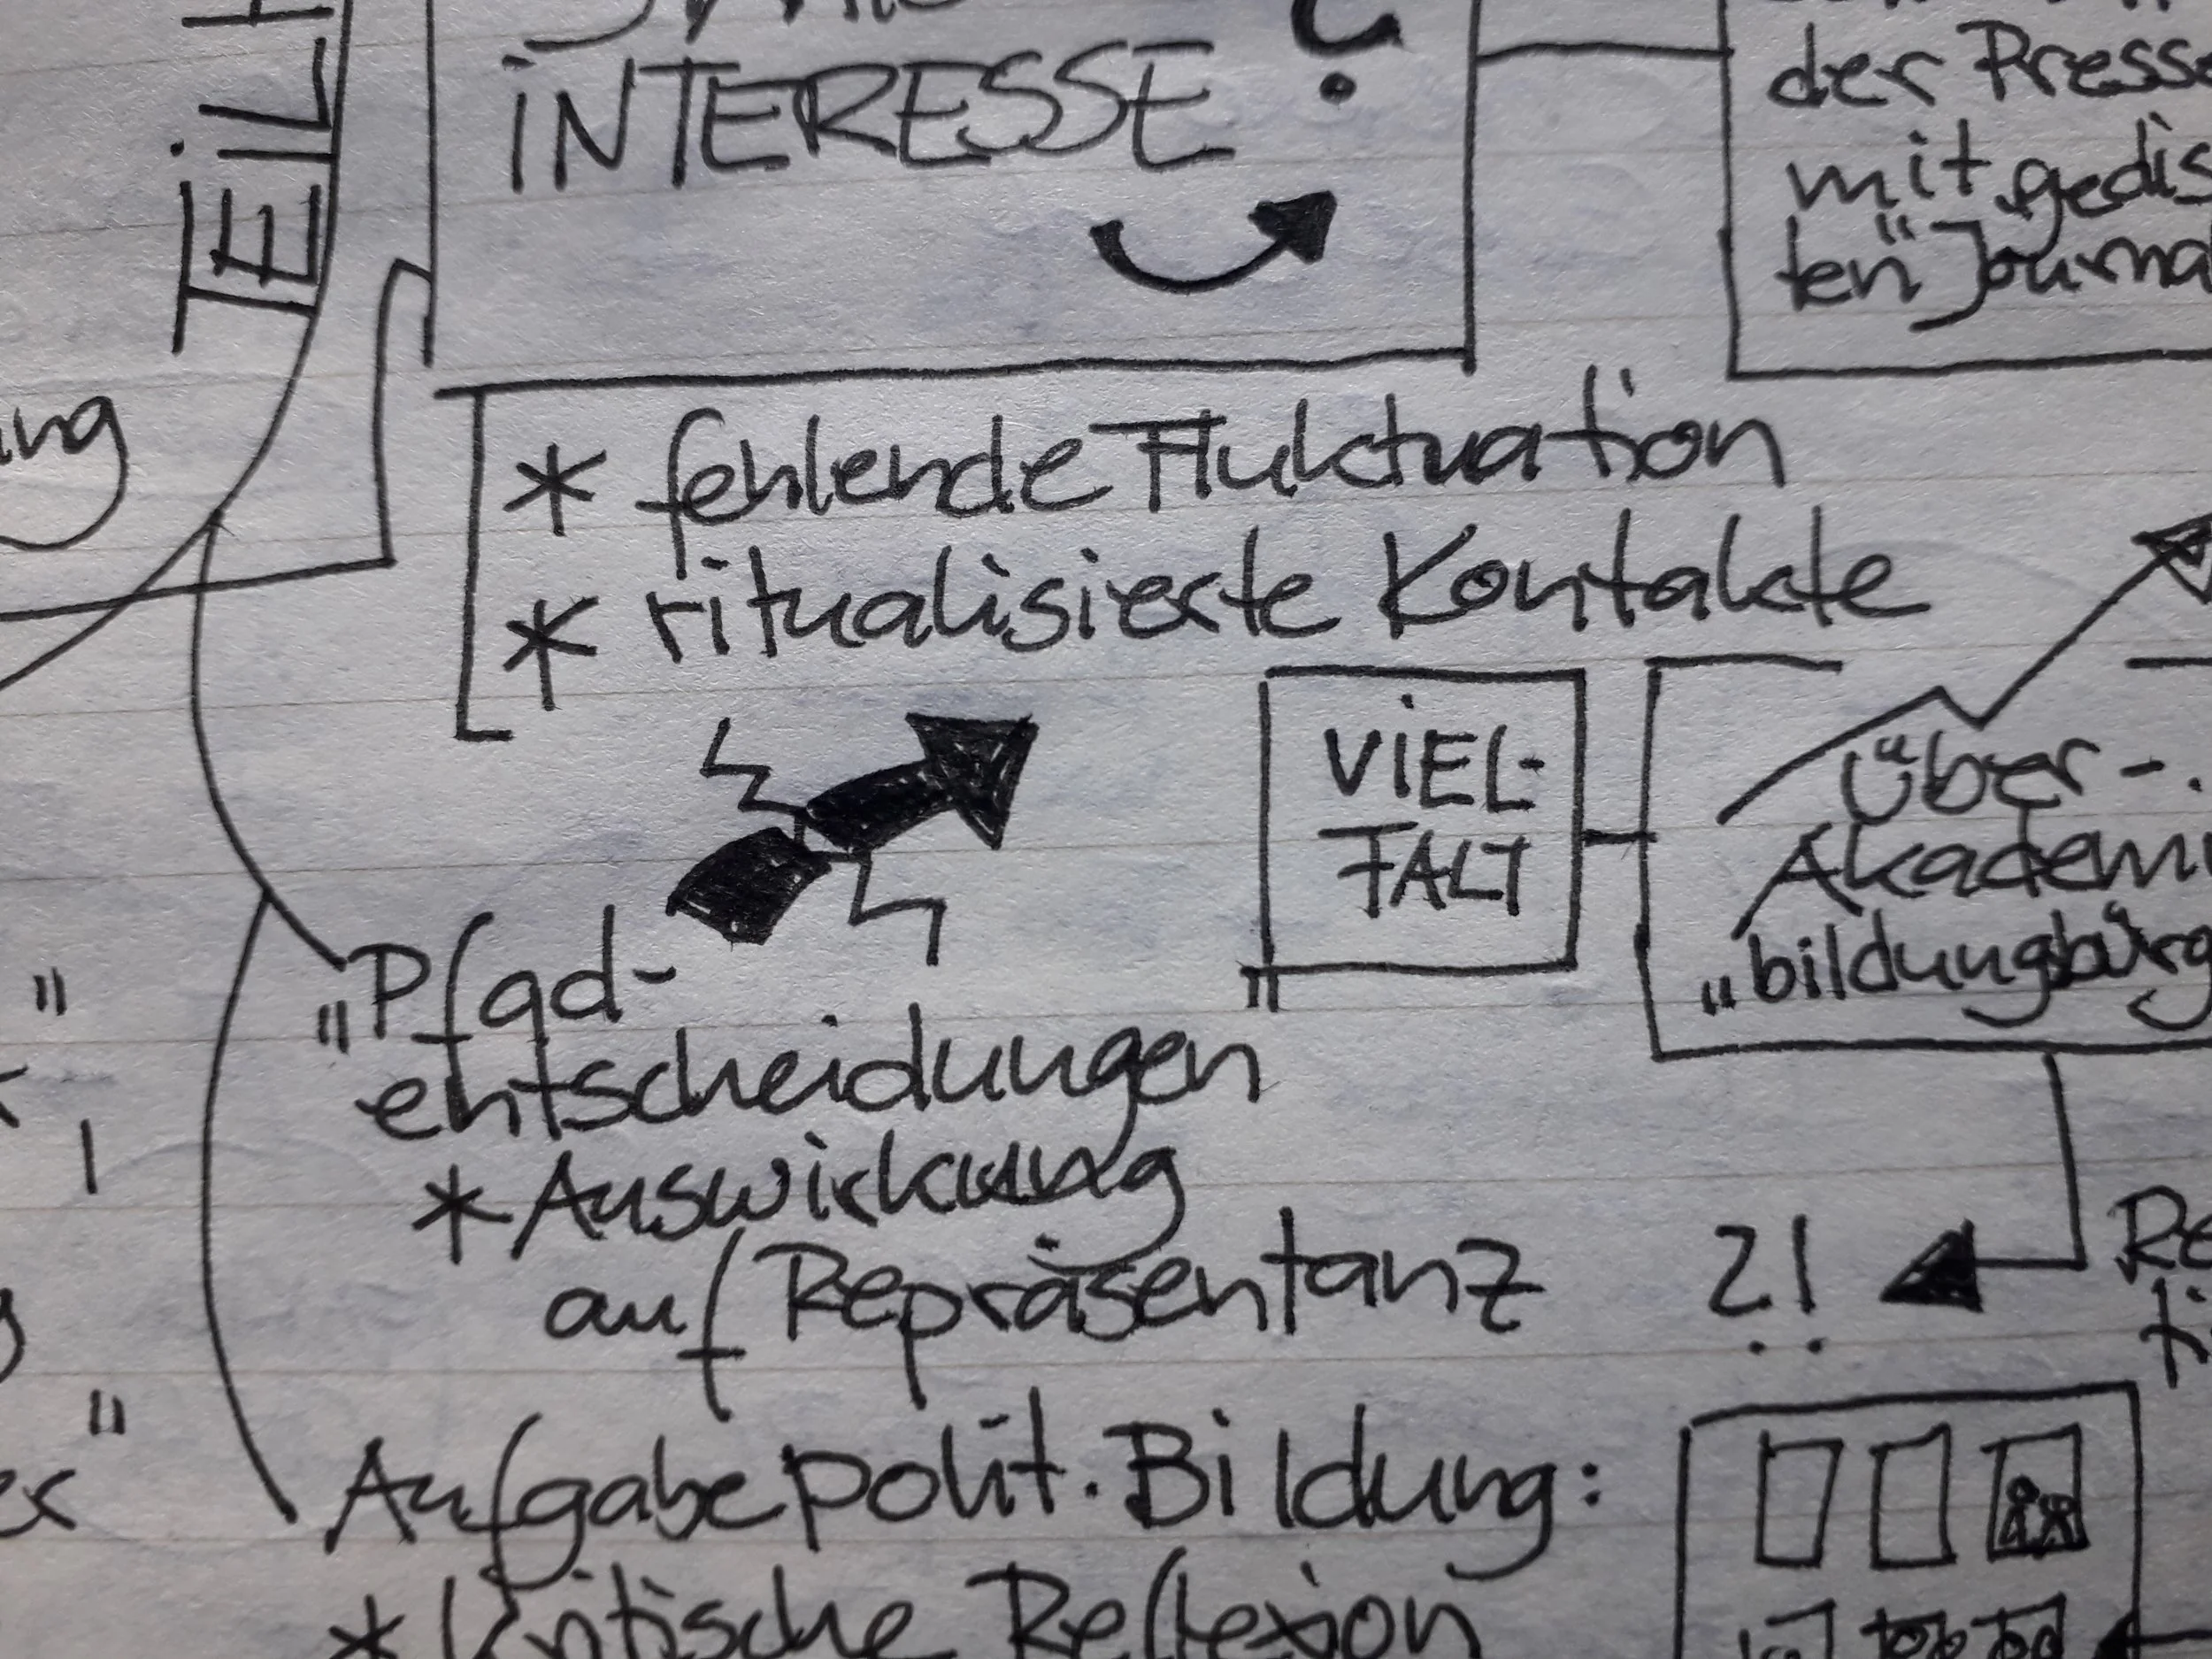 TEIL
INTERESSE ?
der Presse
mit "gedis
ten" Journa
ung
* fehlende Fluktuation
* ritualisierte Kontakte
VIEL-
FALT
Über-
Akademi
„bildungsbürg
„Pfad-
entscheidungen"
* Auswirkung
auf Repräsentanz
?!
Re
ti
Aufgabe polit. Bildung:
* kritische Reflexion